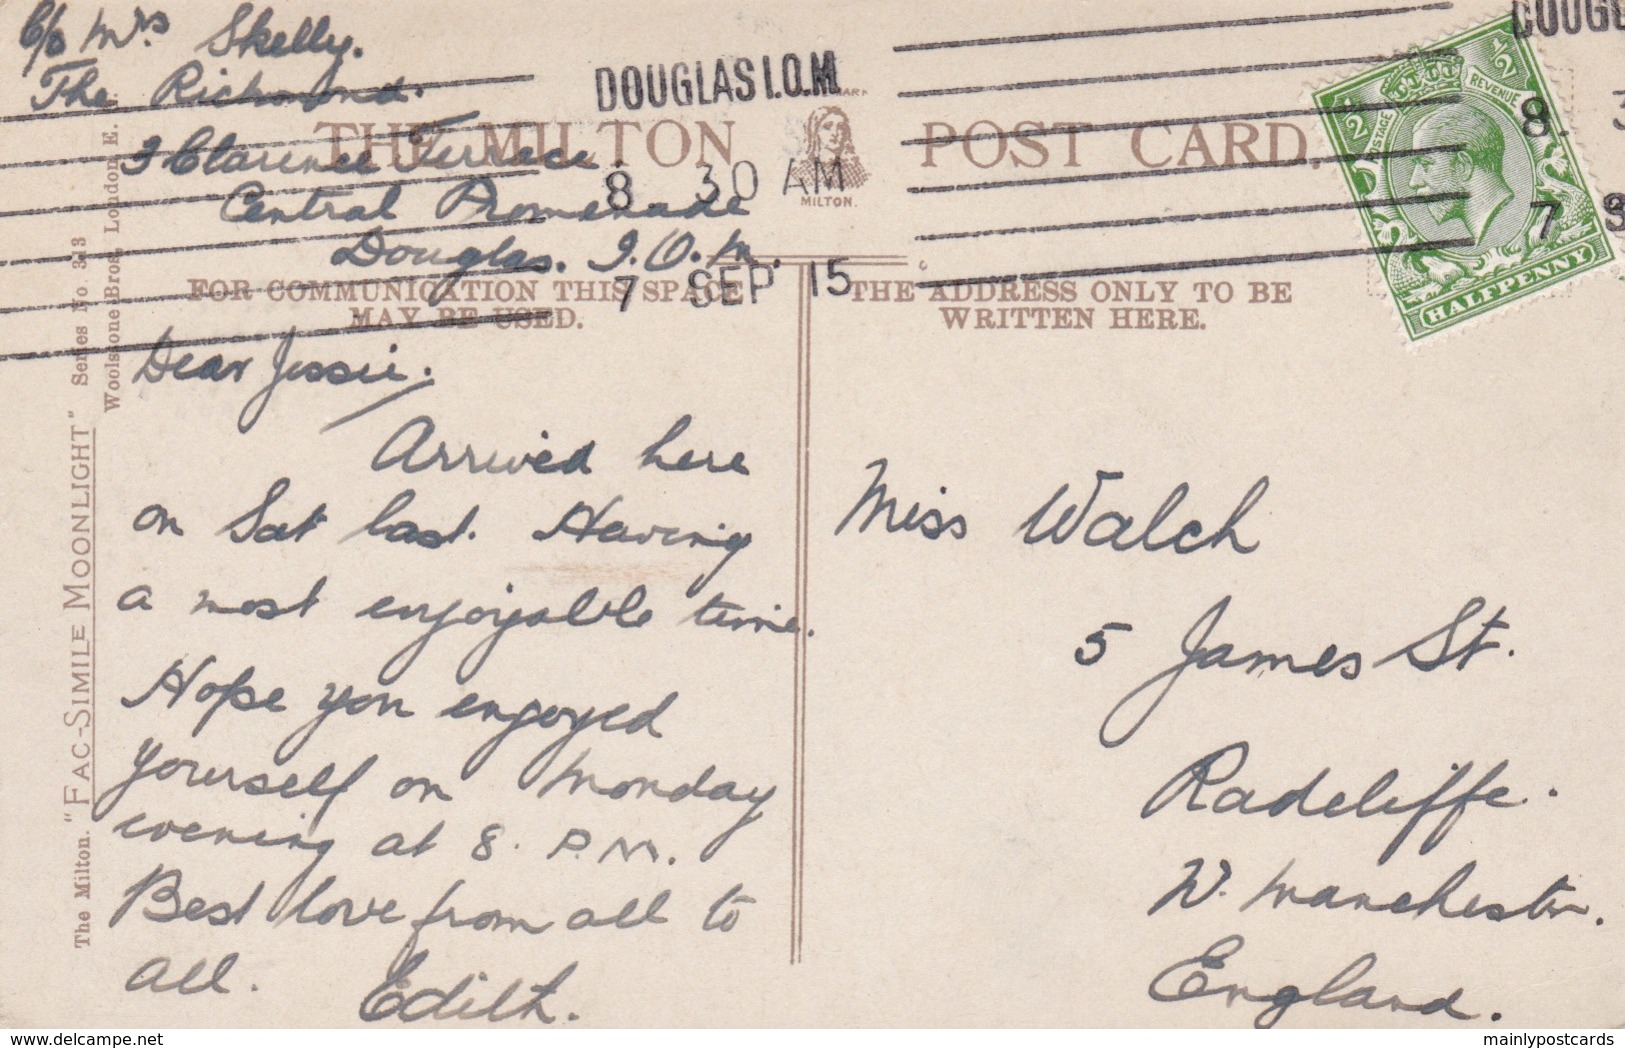 c/o Mrs Skelly.
The Richmond.
3 Clarence Terrace
Central Promenade
Douglas. I.O.M.
DOUGLAS I.O.M.
8 30 AM
7 SEP 15
THE MILTON POST CARD.
MILTON.
DOUGL
8. 3
7 S
POSTAGE REVENUE
1/2 1/2
HALFPENNY
FOR COMMUNICATION THIS SPACE
MAY BE USED.
THE ADDRESS ONLY TO BE
WRITTEN HERE.
Dear Jessie.
Arrived here
on Sat last. Having
a most enjoyable time.
Hope you enjoyed
yourself on Monday
evening at 8. P.M.
Best love from all to
all. Edith.
Miss Walch
5 James St.
Radcliffe.
N. Manchester.
England.
The Milton. "FAC-SIMILE MOONLIGHT" Series No. 313
Woolstone Bros., London E.
mainlypostcards